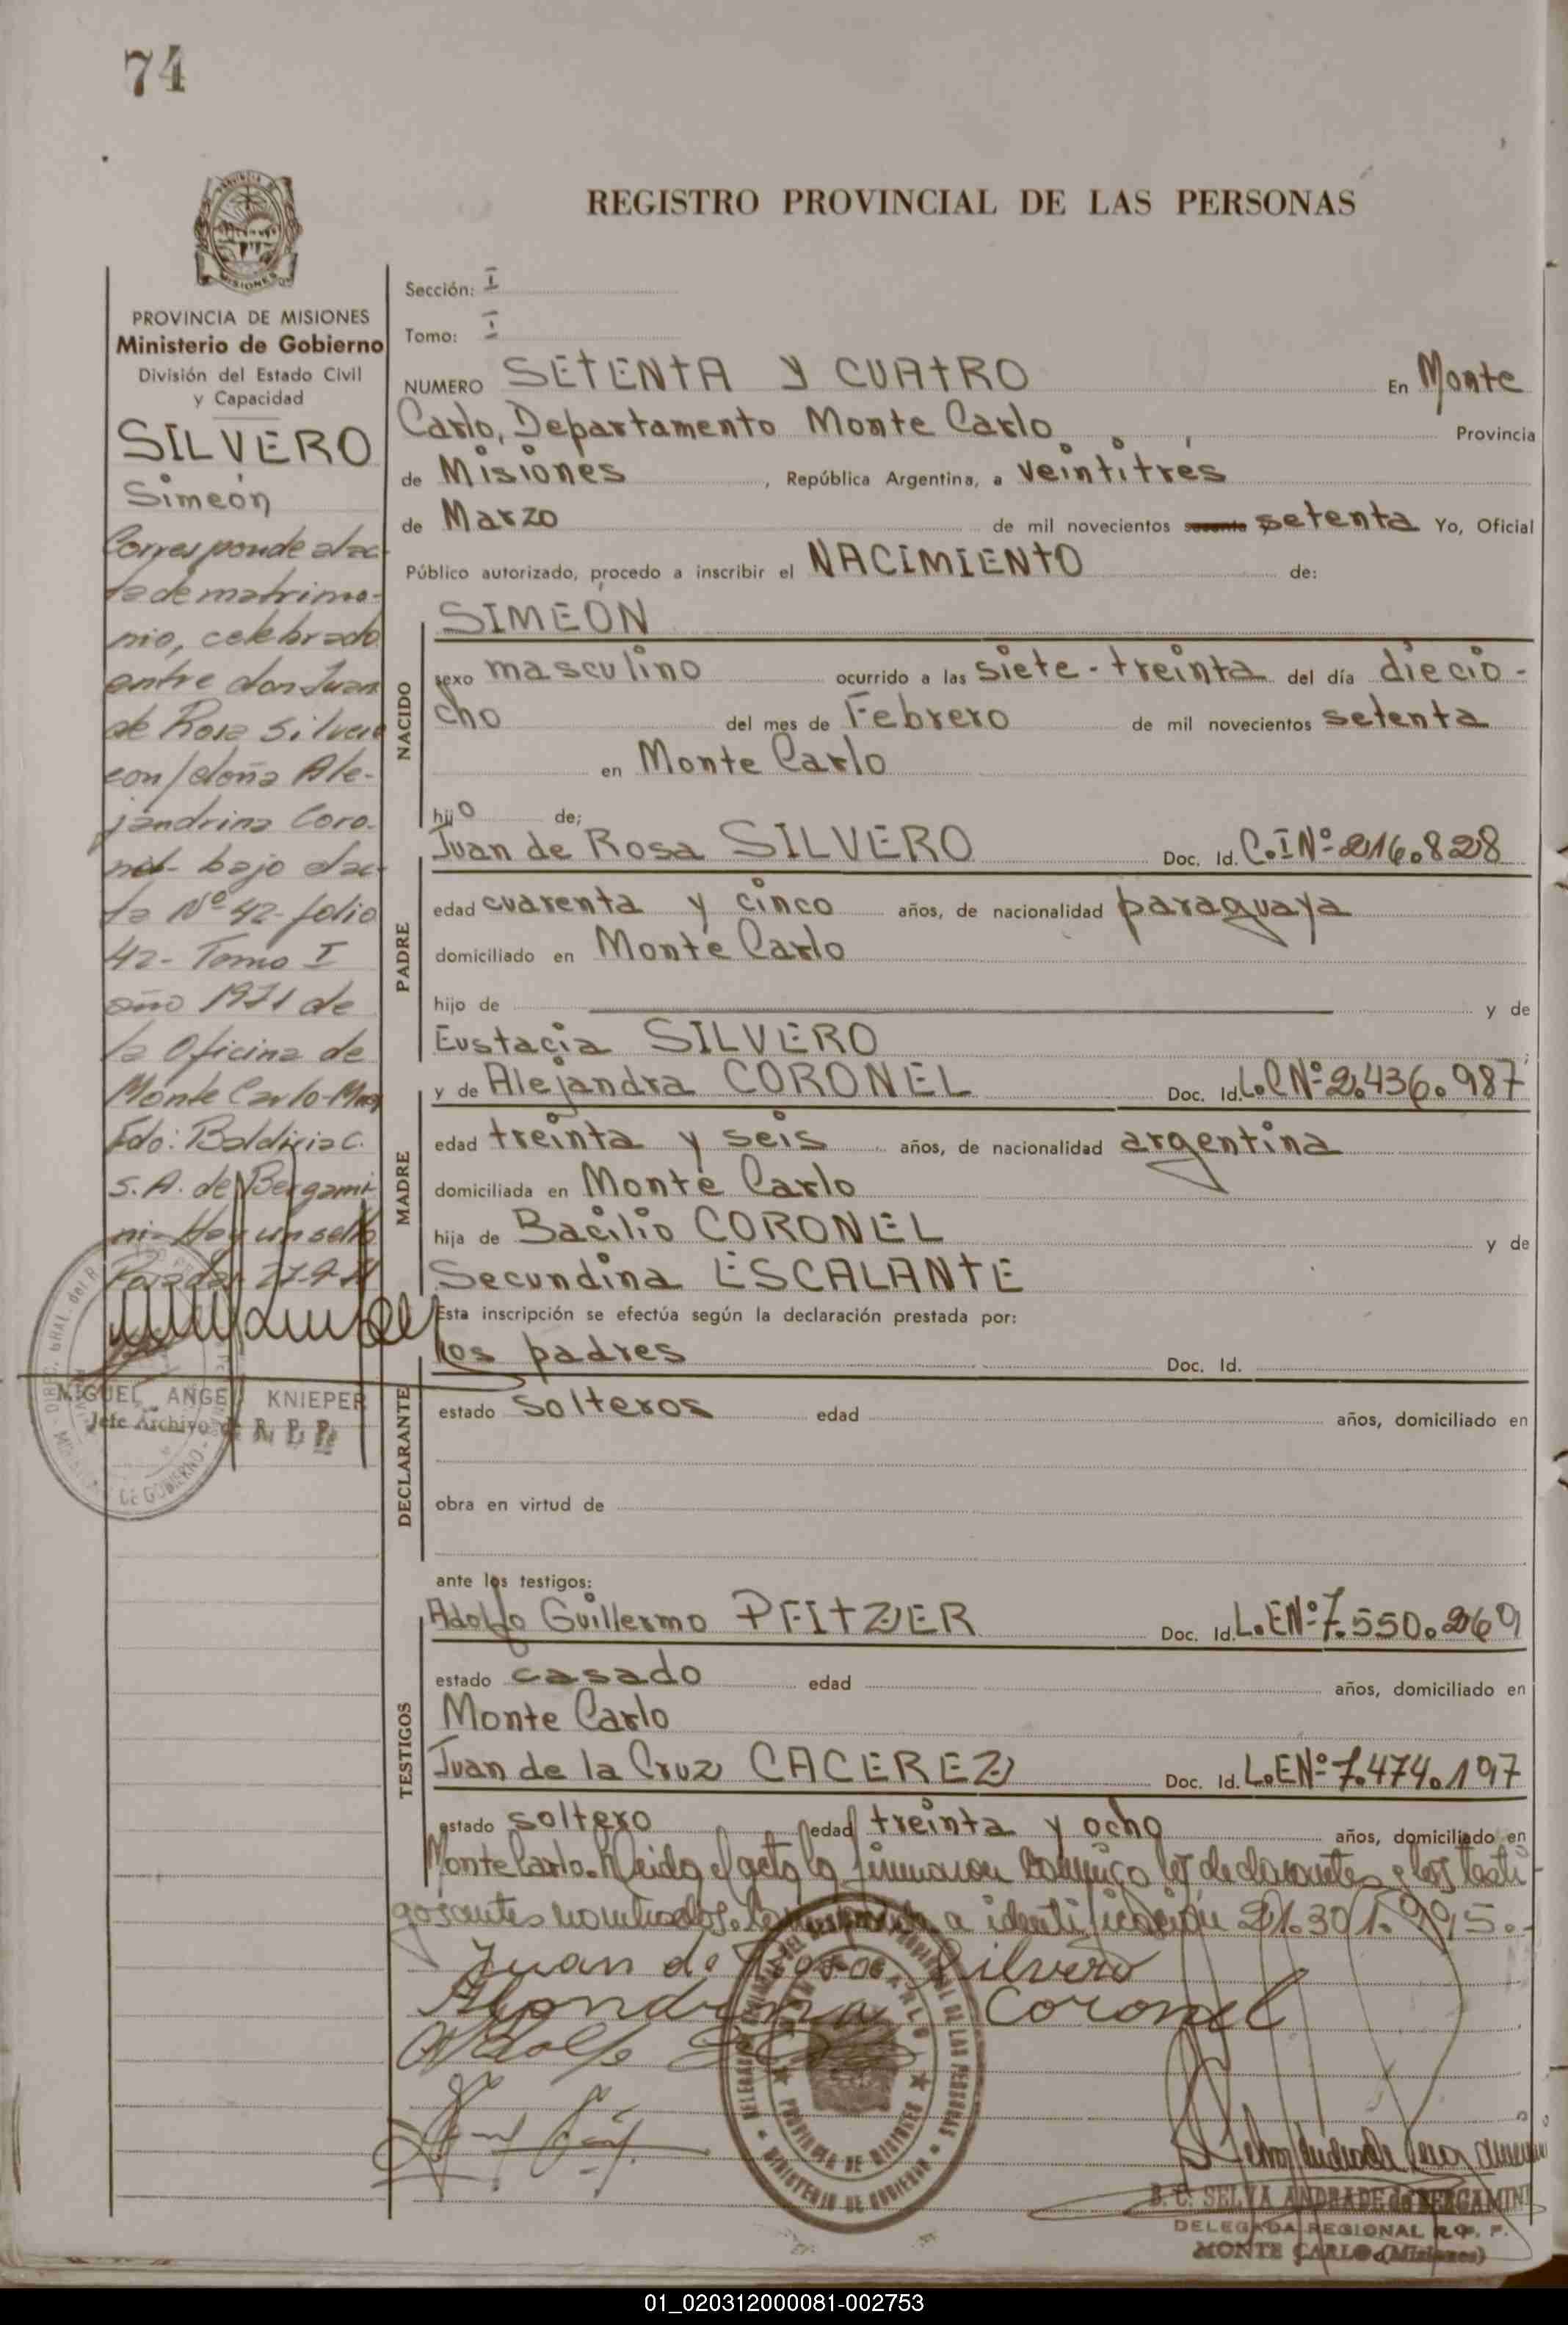 74
REGISTRO PROVINCIAL DE LAS PERSONAS
MISIONES
PROVINCIA DE MISIONES
Ministerio de Gobierno
División del Estado Civil
y Capacidad
SILVERO
Simeón
Corresponde al ac-
ta de matrimo-
nio, celebrado
entre don Juan
de Rosa Silvero
con/doña Ale-
jandrina Coro-
nel- bajo el ac-
ta Nº 42- folio
42- Tomo I
año 1971 de
la Oficina de
Monte Carlo-
Fdo: Baldicia C.
S. A. de Bergami-
ni- Hay un sello
MIGUEL ANGEL KNIEPER
Jefe Archivo R. P. P.
Sección: I
Tomo: I
NUMERO SETENTA Y CUATRO En Monte
Carlo, Departamento Monte Carlo Provincia
de Misiones, República Argentina, a veintitrés
de Marzo de mil novecientos setenta Yo, Oficial
Público autorizado, procedo a inscribir el NACIMIENTO de:
SIMEÓN
NACIDO
sexo masculino ocurrido a las siete-treinta del día diecio-
cho del mes de Febrero de mil novecientos setenta
en Monte Carlo
hijo de;
Juan de Rosa SILVERO Doc. Id. C.I Nº 216.828
PADRE
edad cuarenta y cinco años, de nacionalidad paraguaya
domiciliado en Monte Carlo
hijo de y de
Eustacia SILVERO;
y de Alejandra CORONEL Doc. Id. L.C Nº 2.436.987
MADRE
edad treinta y seis años, de nacionalidad argentina
domiciliada en Monte Carlo
hija de Bacilio CORONEL y de
Secundina ESCALANTE
Esta inscripción se efectúa según la declaración prestada por:
los padres Doc. Id.
DECLARANTE
estado solteros edad años, domiciliado en
obra en virtud de
ante los testigos:
Adolfo Guillermo PFITZER Doc. Id. L.E Nº 7.550.269
TESTIGOS
estado casado edad años, domiciliado en
Monte Carlo
Juan de la Cruz CACEREZ Doc. Id. L.E Nº 7.474.197
estado soltero edad treinta y ocho años, domiciliado en
Monte Carlo. Leida el acta la firmaron conmigo los declarantes y los testi
gos antes nombrados. Corresponde a identificación 21.301.995.-
Juan de Rosa Silvero
Alejandrina Coronel
Adolfo
PROVINCIA DE MISIONES
MINISTERIO DE GOBIERNO
B. C. SELVA ANDRADE de BERGAMINI
DELEGADA REGIONAL R. P. P.
MONTE CARLO (Misiones)
01_020312000081-002753